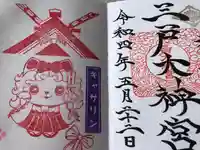 三戸大神宮
令和四年五月二十二日
キャサリン